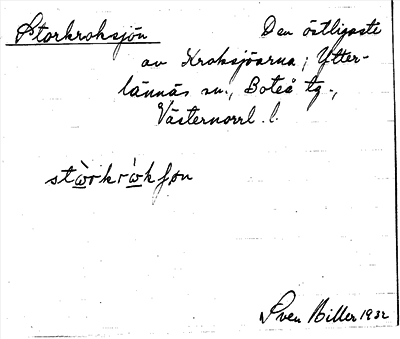 Storkroksjön Den östligaste
av Kroksjöarna; Ytter-
lännäs sn., Boteå tg.,
Västernorrl. l.
stὼrkrὼkʃøn
Sven Biller 1932